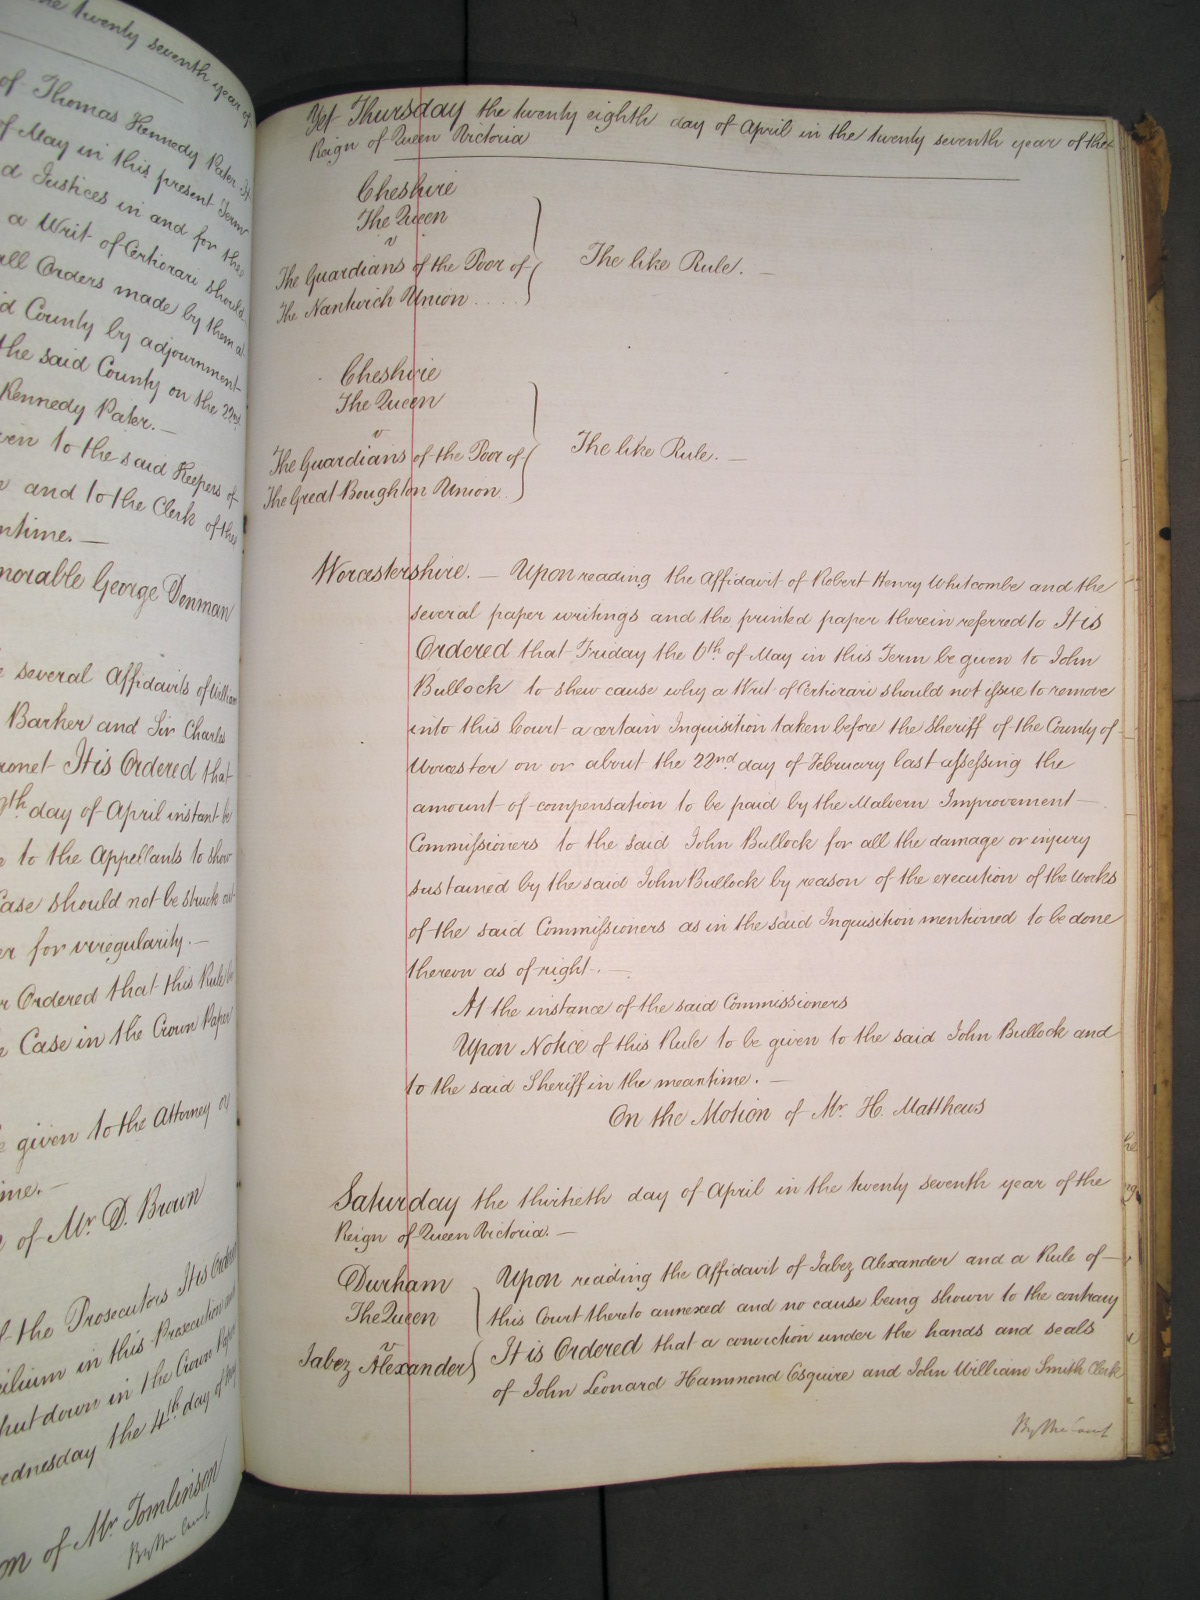 the twenty seventh year of
of Thomas Kennedy Pater
of May in this present Term
d Justices in and for the
a Writ of Certiorari should
all Orders made by them at
d County by adjournment
the said County on the 22nd
Kennedy Pater. —
ven to the said Keepers of
and to the Clerk of the
ntime. —
norable George Denman
several Affidavits of William
Barker and Sir Charles
ronet It is Ordered that
th day of April instant be
to the Appellants to show
Case should not be struck out
er for irregularity. —
r Ordered that this Rule be
Case in the Crown Paper
given to the Attorney or
ime. —
of Mr. D. Brown
f the Prosecutors It is Ordered
cilium in this Prosecution
hut down in the Crown Paper
ednesday the 4th day of May
on of Mr. Tomlinson
By the Court
Yet Thursday the twenty eighth day of April in the twenty seventh year of the
Reign of Queen Victoria
Cheshire
The Queen
v
The Guardians of the Poor of
The Nantwich Union ....
The like Rule. —
Cheshire
The Queen
v
The Guardians of the Poor of
The Great Boughton Union.
The like Rule. —
Worcestershire. — Upon reading the Affidavit of Robert Henry Whitcombe and the
several paper writings and the printed paper therein referred to It is
Ordered that Friday the 6th of May in this Term be given to John
Bullock to shew cause why a Writ of Certiorari should not issue to remove
into this Court a certain Inquisition taken before the Sheriff of the County of
Worcester on or about the 22nd day of February last assessing the
amount of compensation to be paid by the Malvern Improvement —
Commissioners to the said John Bullock for all the damage or injury
sustained by the said John Bullock by reason of the execution of the works
of the said Commissioners as in the said Inquisition mentioned to be done
thereon as of right. —
At the instance of the said Commissioners
Upon Notice of this Rule to be given to the said John Bullock and
to the said Sheriff in the meantime. —
On the Motion of Mr. H. Matthews
Saturday the thirtieth day of April in the twenty seventh year of the
Reign of Queen Victoria. —
Durham
The Queen
v
Jabez Alexander
Upon reading the Affidavit of Jabez Alexander and a Rule of —
this Court thereto annexed and no cause being shown to the contrary
It is Ordered that a conviction under the hands and seals
of John Leonard Hammond Esquire and John William Smith Clerk
By the Court